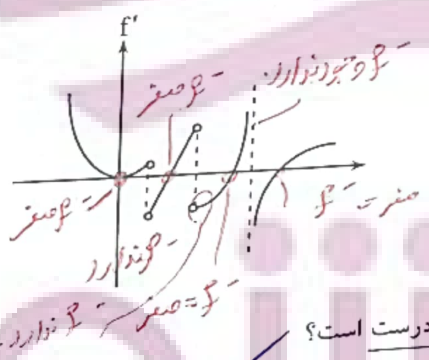 f'
f' صفر
f' وجود ندارد
f' صفر
f' ندارد
f' = صفر
f' ندارد
صفر = f'
درست است؟